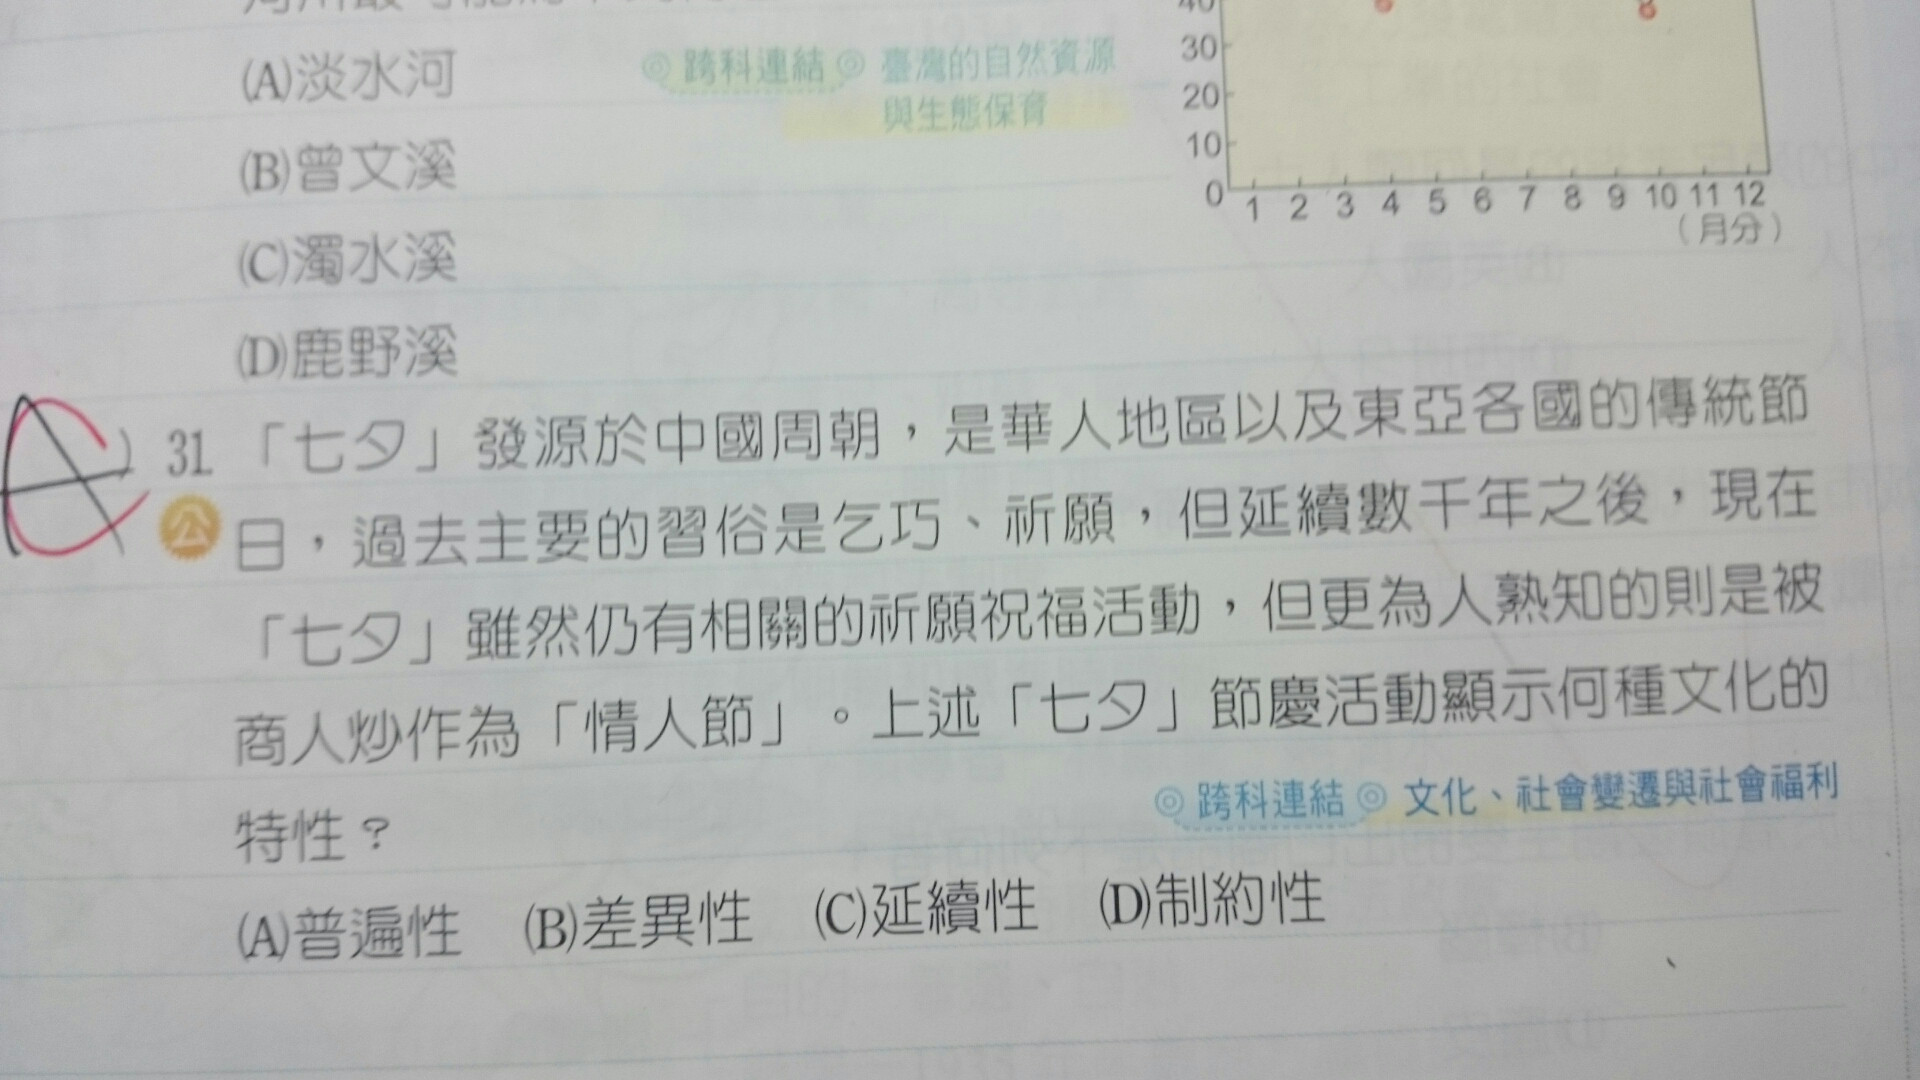 40
30
20
10
0
1 2 3 4 5 6 7 8 9 10 11 12
（月分）
(A)淡水河
◎跨科連結◎ 臺灣的自然資源
與生態保育
(B)曾文溪
(C)濁水溪
(D)鹿野溪
A C ) 31 「七夕」發源於中國周朝，是華人地區以及東亞各國的傳統節
公 日，過去主要的習俗是乞巧、祈願，但延續數千年之後，現在
「七夕」雖然仍有相關的祈願祝福活動，但更為人熟知的則是被
商人炒作為「情人節」。上述「七夕」節慶活動顯示何種文化的
特性？
◎跨科連結◎ 文化、社會變遷與社會福利
(A)普遍性 (B)差異性 (C)延續性 (D)制約性